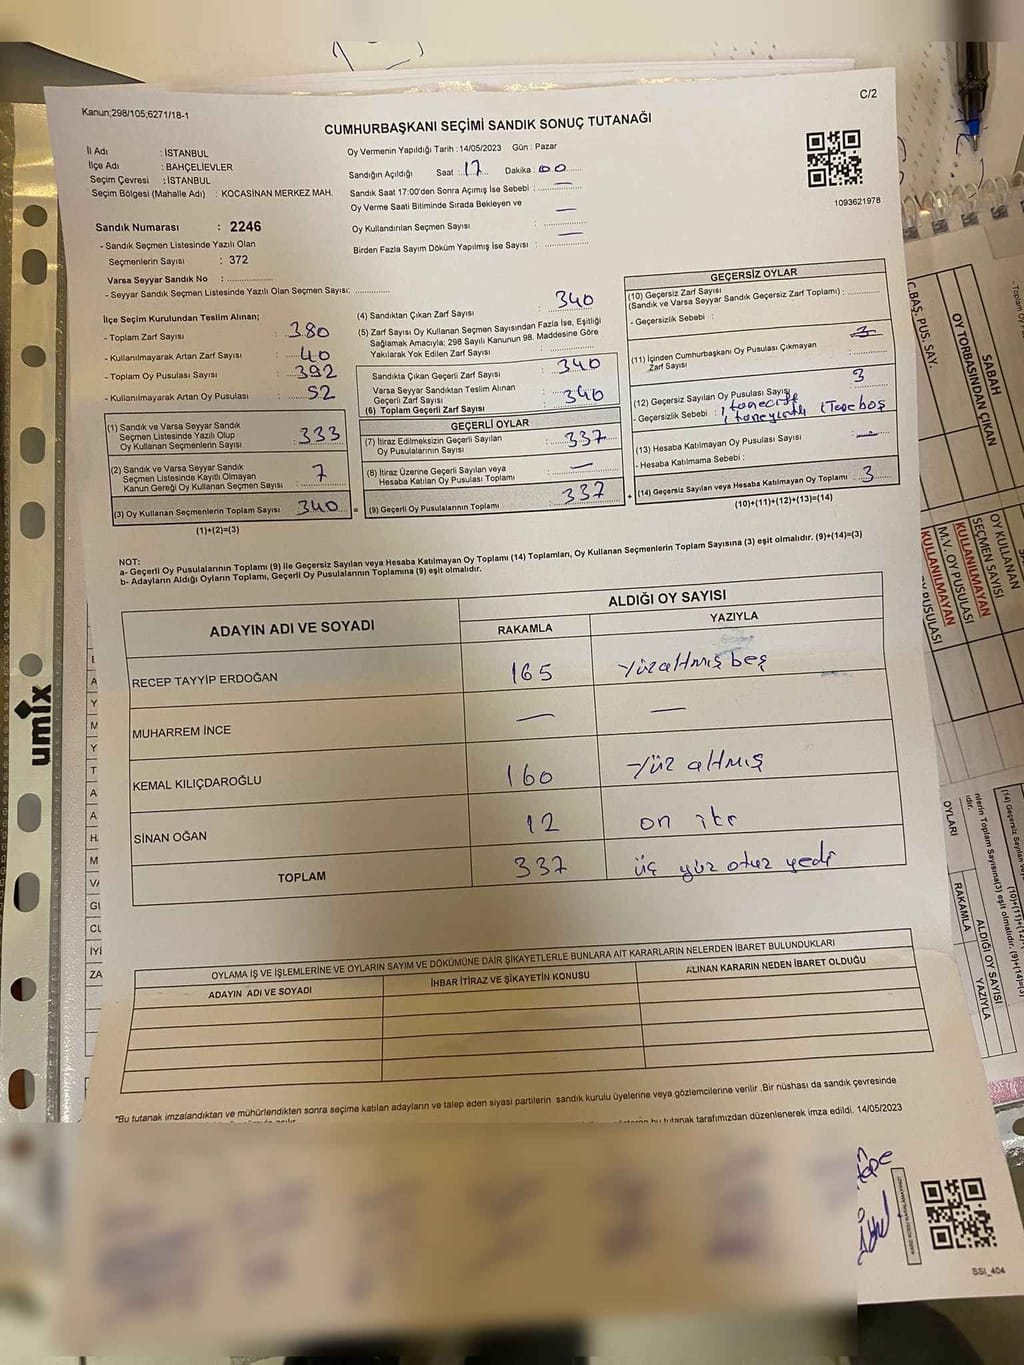 Kanun;298/105;6271/18-1
C/2
CUMHURBAŞKANI SEÇİMİ SANDIK SONUÇ TUTANAĞI
İl Adı : İSTANBUL
İlçe Adı : BAHÇELİEVLER
Seçim Çevresi : İSTANBUL
Seçim Bölgesi (Mahalle Adı) : KOCASİNAN MERKEZ MAH.
Sandık Numarası : 2246
- Sandık Seçmen Listesinde Yazılı Olan
Seçmenlerin Sayısı : 372
Varsa Seyyar Sandık No : ..................
- Seyyar Sandık Seçmen Listesinde Yazılı Olan Seçmen Sayısı: ................
Oy Vermenin Yapıldığı Tarih : 14/05/2023 Gün : Pazar
Sandığın Açıldığı Saat : 17 Dakika : 00
Sandık Saat 17:00'den Sonra Açımış İse Sebebi : —
Oy Verme Saati Bitiminde Sırada Bekleyen ve
Oy Kullandırılan Seçmen Sayısı : —
Birden Fazla Sayım Döküm Yapılmış İse Sayısı : —
1093621978
İlçe Seçim Kurulundan Teslim Alınan;
- Toplam Zarf Sayısı : 380
- Kullanılmayarak Artan Zarf Sayısı : 40
- Toplam Oy Pusulası Sayısı : 392
- Kullanılmayarak Artan Oy Pusulası : 52
(1) Sandık ve Varsa Seyyar Sandık
Seçmen Listesinde Yazılı Olup
Oy Kullanan Seçmenlerin Sayısı : 333
(2) Sandık ve Varsa Seyyar Sandık
Seçmen Listesinde Kayıtlı Olmayan
Kanun Gereği Oy Kullanan Seçmen Sayısı : 7
(3) Oy Kullanan Seçmenlerin Toplam Sayısı : 340
(1)+(2)=(3)
(4) Sandıktan Çıkan Zarf Sayısı : 340
(5) Zarf Sayısı Oy Kullanan Seçmen Sayısından Fazla İse, Eşitliği
Sağlamak Amacıyla; 298 Sayılı Kanunun 98. Maddesine Göre
Yakılarak Yok Edilen Zarf Sayısı : ................
Sandıkta Çıkan Geçerli Zarf Sayısı : 340
Varsa Seyyar Sandıktan Teslim Alınan
Geçerli Zarf Sayısı
(6) Toplam Geçerli Zarf Sayısı : 340
GEÇERLİ OYLAR
(7) İtiraz Edilmeksizin Geçerli Sayılan
Oy Pusulalarının Sayısı : 337
(8) İtiraz Üzerine Geçerli Sayılan veya
Hesaba Katılan Oy Pusulası Toplamı : —
(9) Geçerli Oy Pusulalarının Toplamı : 337
GEÇERSİZ OYLAR
(10) Geçersiz Zarf Sayısı
(Sandık ve Varsa Seyyar Sandık Geçersiz Zarf Toplamı) : ................
- Geçersizlik Sebebi :
(11) İçinden Cumhurbaşkanı Oy Pusulası Çıkmayan
Zarf Sayısı : 3
(12) Geçersiz Sayılan Oy Pusulası Sayısı : 3
- Geçersizlik Sebebi : 1 tane 1 tane 1 Tane boş
(13) Hesaba Katılmayan Oy Pusulası Sayısı : —
- Hesaba Katılmama Sebebi :
(14) Geçersiz Sayılan veya Hesaba Katılmayan Oy Toplamı : 3
(10)+(11)+(12)+(13)=(14)
NOT:
a- Geçerli Oy Pusulalarının Toplamı (9) ile Geçersiz Sayılan veya Hesaba Katılmayan Oy Toplamı (14) Toplamları, Oy Kullanan Seçmenlerin Toplam Sayısına (3) eşit olmalıdır. (9)+(14)=(3)
b- Adayların Aldığı Oyların Toplamı, Geçerli Oy Pusulalarının Toplamına (9) eşit olmalıdır.
ADAYIN ADI VE SOYADI ALDIĞI OY SAYISI
RAKAMLA YAZIYLA
RECEP TAYYİP ERDOĞAN 165 Yüzaltmış beş
MUHARREM İNCE — —
KEMAL KILIÇDAROĞLU 160 Yüz altmış
SİNAN OĞAN 12 on iki
TOPLAM 337 üç yüz otuz yedi
OYLAMA İŞ VE İŞLEMLERİNE VE OYLARIN SAYIM VE DÖKÜMÜNE DAİR ŞİKAYETLERLE BUNLARA AİT KARARLARIN NELERDEN İBARET BULUNDUKLARI
ADAYIN ADI VE SOYADI İHBAR İTİRAZ VE ŞİKAYETİN KONUSU ALINAN KARARIN NEDEN İBARET OLDUĞU
*Bu tutanak imzalandıktan ve mühürlendikten sonra seçime katılan adayların ve talep eden siyasi partilerin sandık kurulu üyelerine veya gözlemcilerine verilir .Bir nüshası da sandık çevresinde
bu tutanak tarafımızdan düzenlenerek imza edildi. 14/05/2023
SSI_404
umix
SABAH
OY TORBASINDAN ÇIKAN
BAŞ. PUS. SAY.
OY KULLANAN
SEÇMEN SAYISI
KULLANILMAYAN
M.V. OY PUSULASI
KULLANILMAYAN
OY PUSULASI
OYLARI
RAKAMLA
ALDIĞI OY SAYISI
YAZIYLA